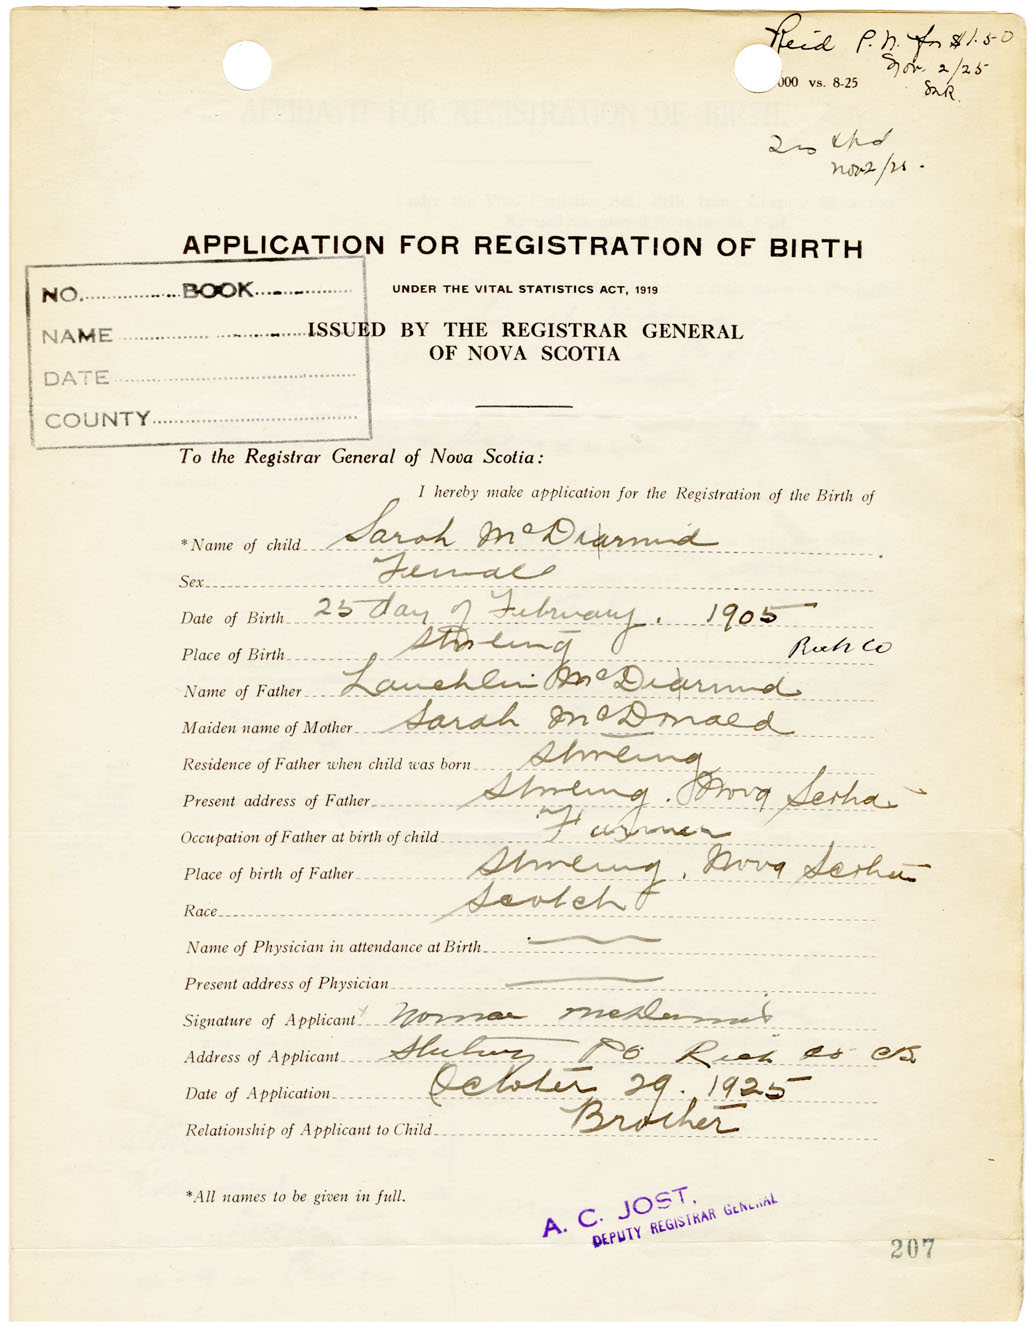 Reid P. N. for $1.50
Nov. 2/25
000 vs. 8-25
Nov 2/25.
APPLICATION FOR REGISTRATION OF BIRTH
UNDER THE VITAL STATISTICS ACT, 1919
ISSUED BY THE REGISTRAR GENERAL
OF NOVA SCOTIA
NO. BOOK
NAME
DATE
COUNTY
To the Registrar General of Nova Scotia:
I hereby make application for the Registration of the Birth of
*Name of child Sarah McDiarmid
Sex Female
Date of Birth 25 day of February. 1905
Place of Birth Stirling Rich Co
Name of Father Lauchlin McDiarmid
Maiden name of Mother Sarah McDonald
Residence of Father when child was born Stirling
Present address of Father Stirling. Nova Scotia
Occupation of Father at birth of child Farmer
Place of birth of Father Stirling, Nova Scotia
Race Scotch
Name of Physician in attendance at Birth
Present address of Physician
Signature of Applicant Norman
Address of Applicant PO Rich Co CB.
Date of Application October 29. 1925
Relationship of Applicant to Child Brother
*All names to be given in full.
A. C. JOST,
DEPUTY REGISTRAR GENERAL
207